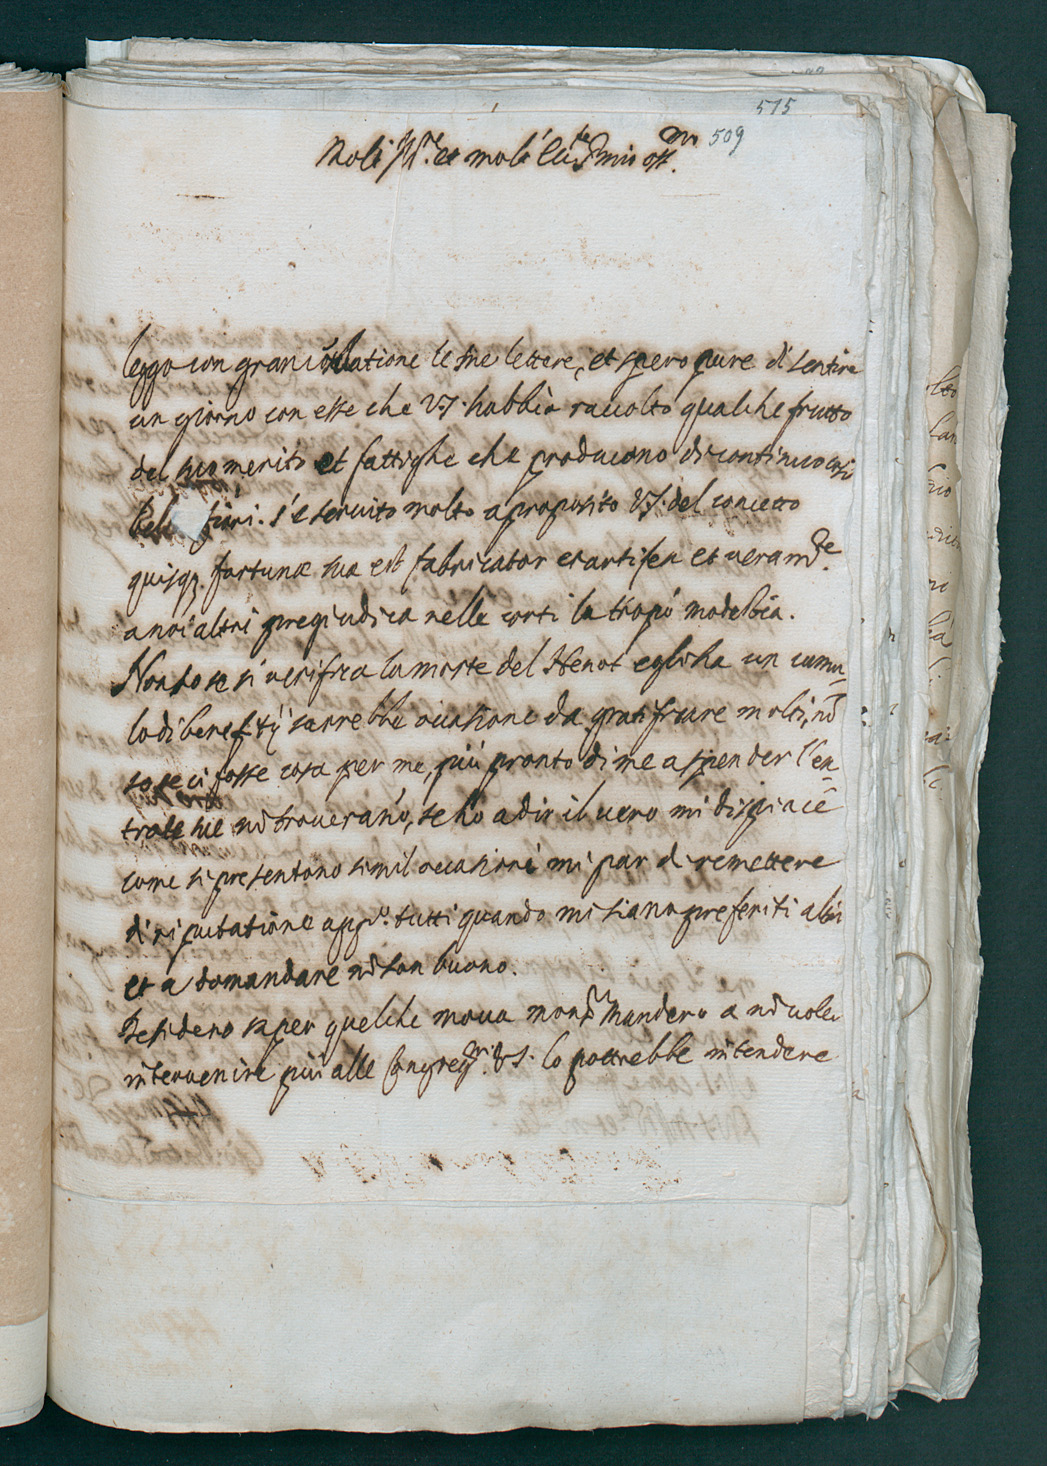 515
509
Molt Ill.re et molt Ecc.te S.r mio oss.mo
leggo con gran cõsolatione le sue lettere, et spero pure di sentire
un giorno con esse che V.S. habbia raccolto qualche frutto
del suo merito et fattighe che producono di continuo cosi
bell fiori. s'è servito molto a proposito V.S. del concetto
quisq. fortunæ suæ est fabricator et artifex et veram.te
a noi altri pregiudica nelle corti la tropó modestia.
Non so se si verifica la morte del Henot egli ha un cumu
lo di benefitÿ sarrebbe occasione da gratificare molti, nõ
so se ci fosse cosa per me, più pronto di me a spender l'en
trate sue nõ troverano, se ho a dir il vero mi dispiacẽ
come si presentono simil occasioni mi par di remettere
di riputatione app.o tutti quando mi siano preferiti altri
et a domandare nõ son buono.
Desidero saper quelche mova mons.r Mandero a nõ voler
intervenire più alle Congreg.ni. V.S. lo pottrebbe intendere